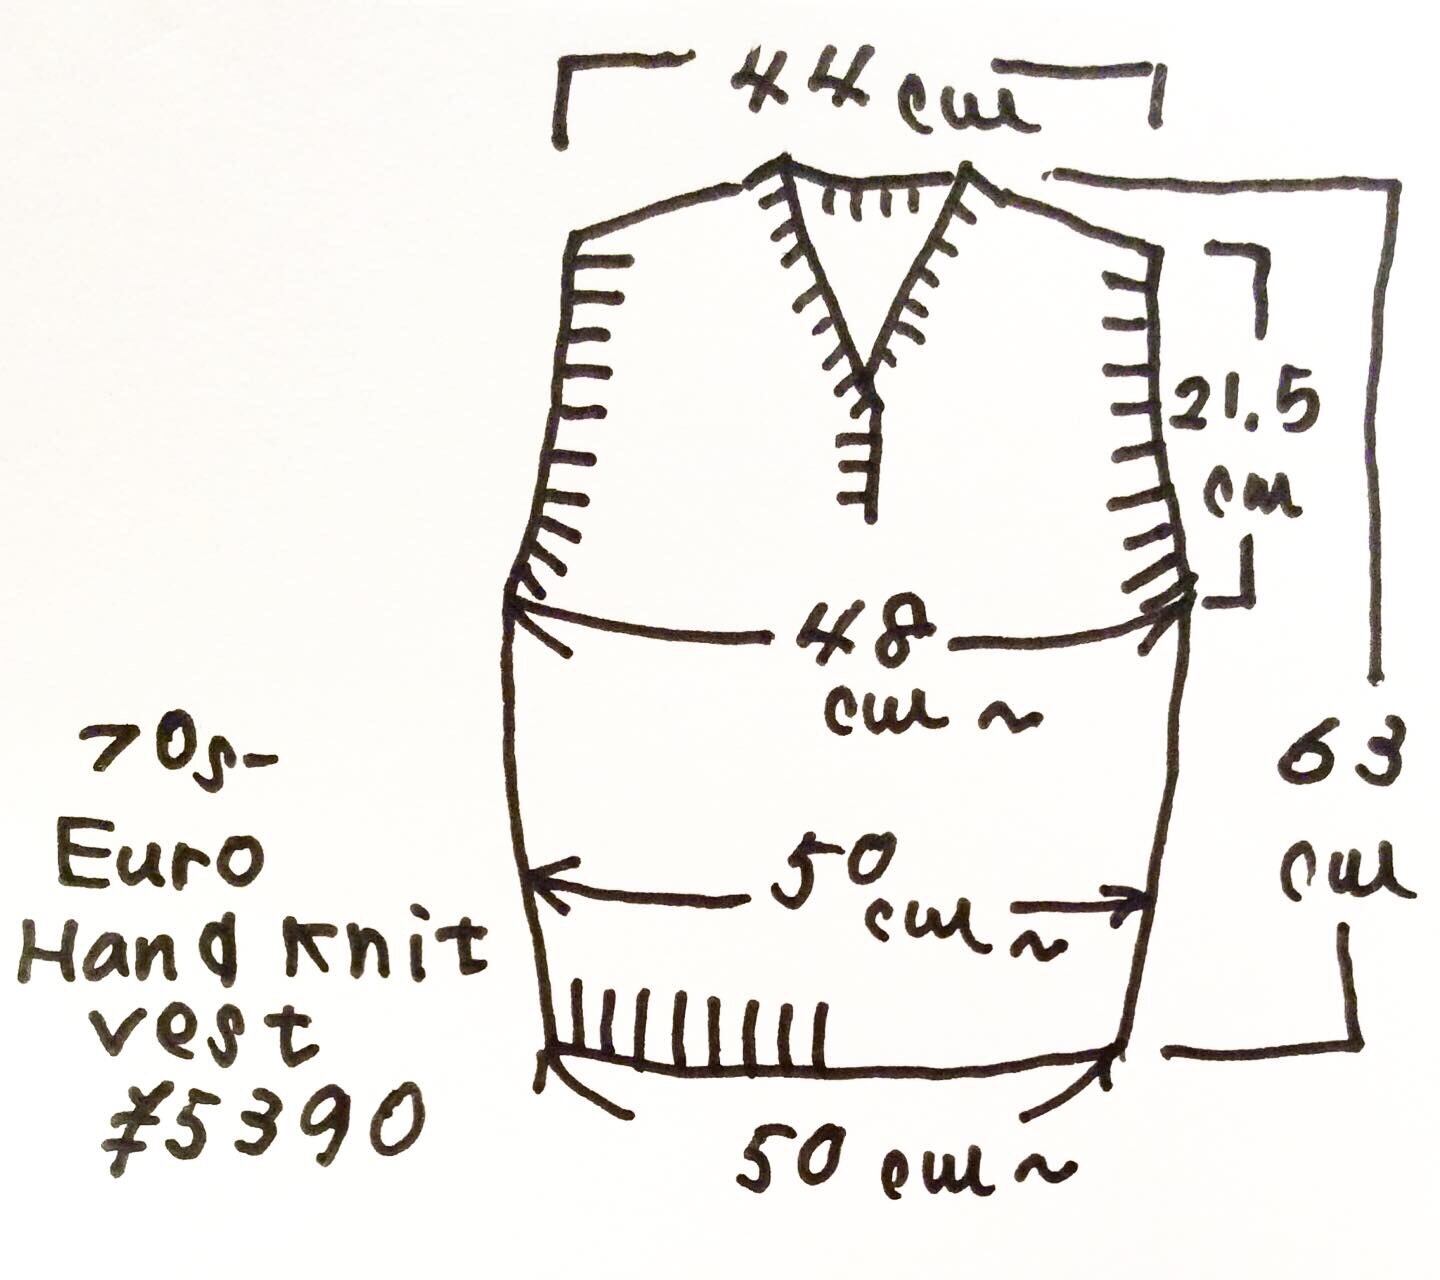 44 cm
21.5
cm
48
cm ~
63
cm
50
cm ~
50 cm ~
70s-
Euro
Hand Knit
vest
¥5390